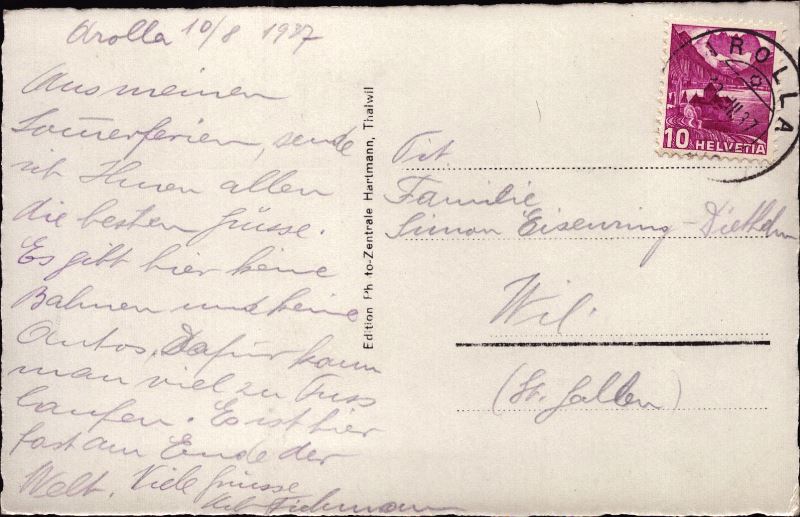 Arolla 10/8 1937
Aus meinen
Sommerferien, sende
ich Ihnen allen
die besten Grüsse.
Es gibt hier keine
Bahnen und keine
Autos. Dafür kann
man viel zu Fuss
laufen. Es ist hier
fast am Ende der
Welt. Viele Grüsse
Edition Ph to-Zentrale Hartmann, Thalwil
AROLLA
10 HELVETIA
Tit.
Familie
Simon Eisenring-Diethelm
Wil.
(St. Gallen)